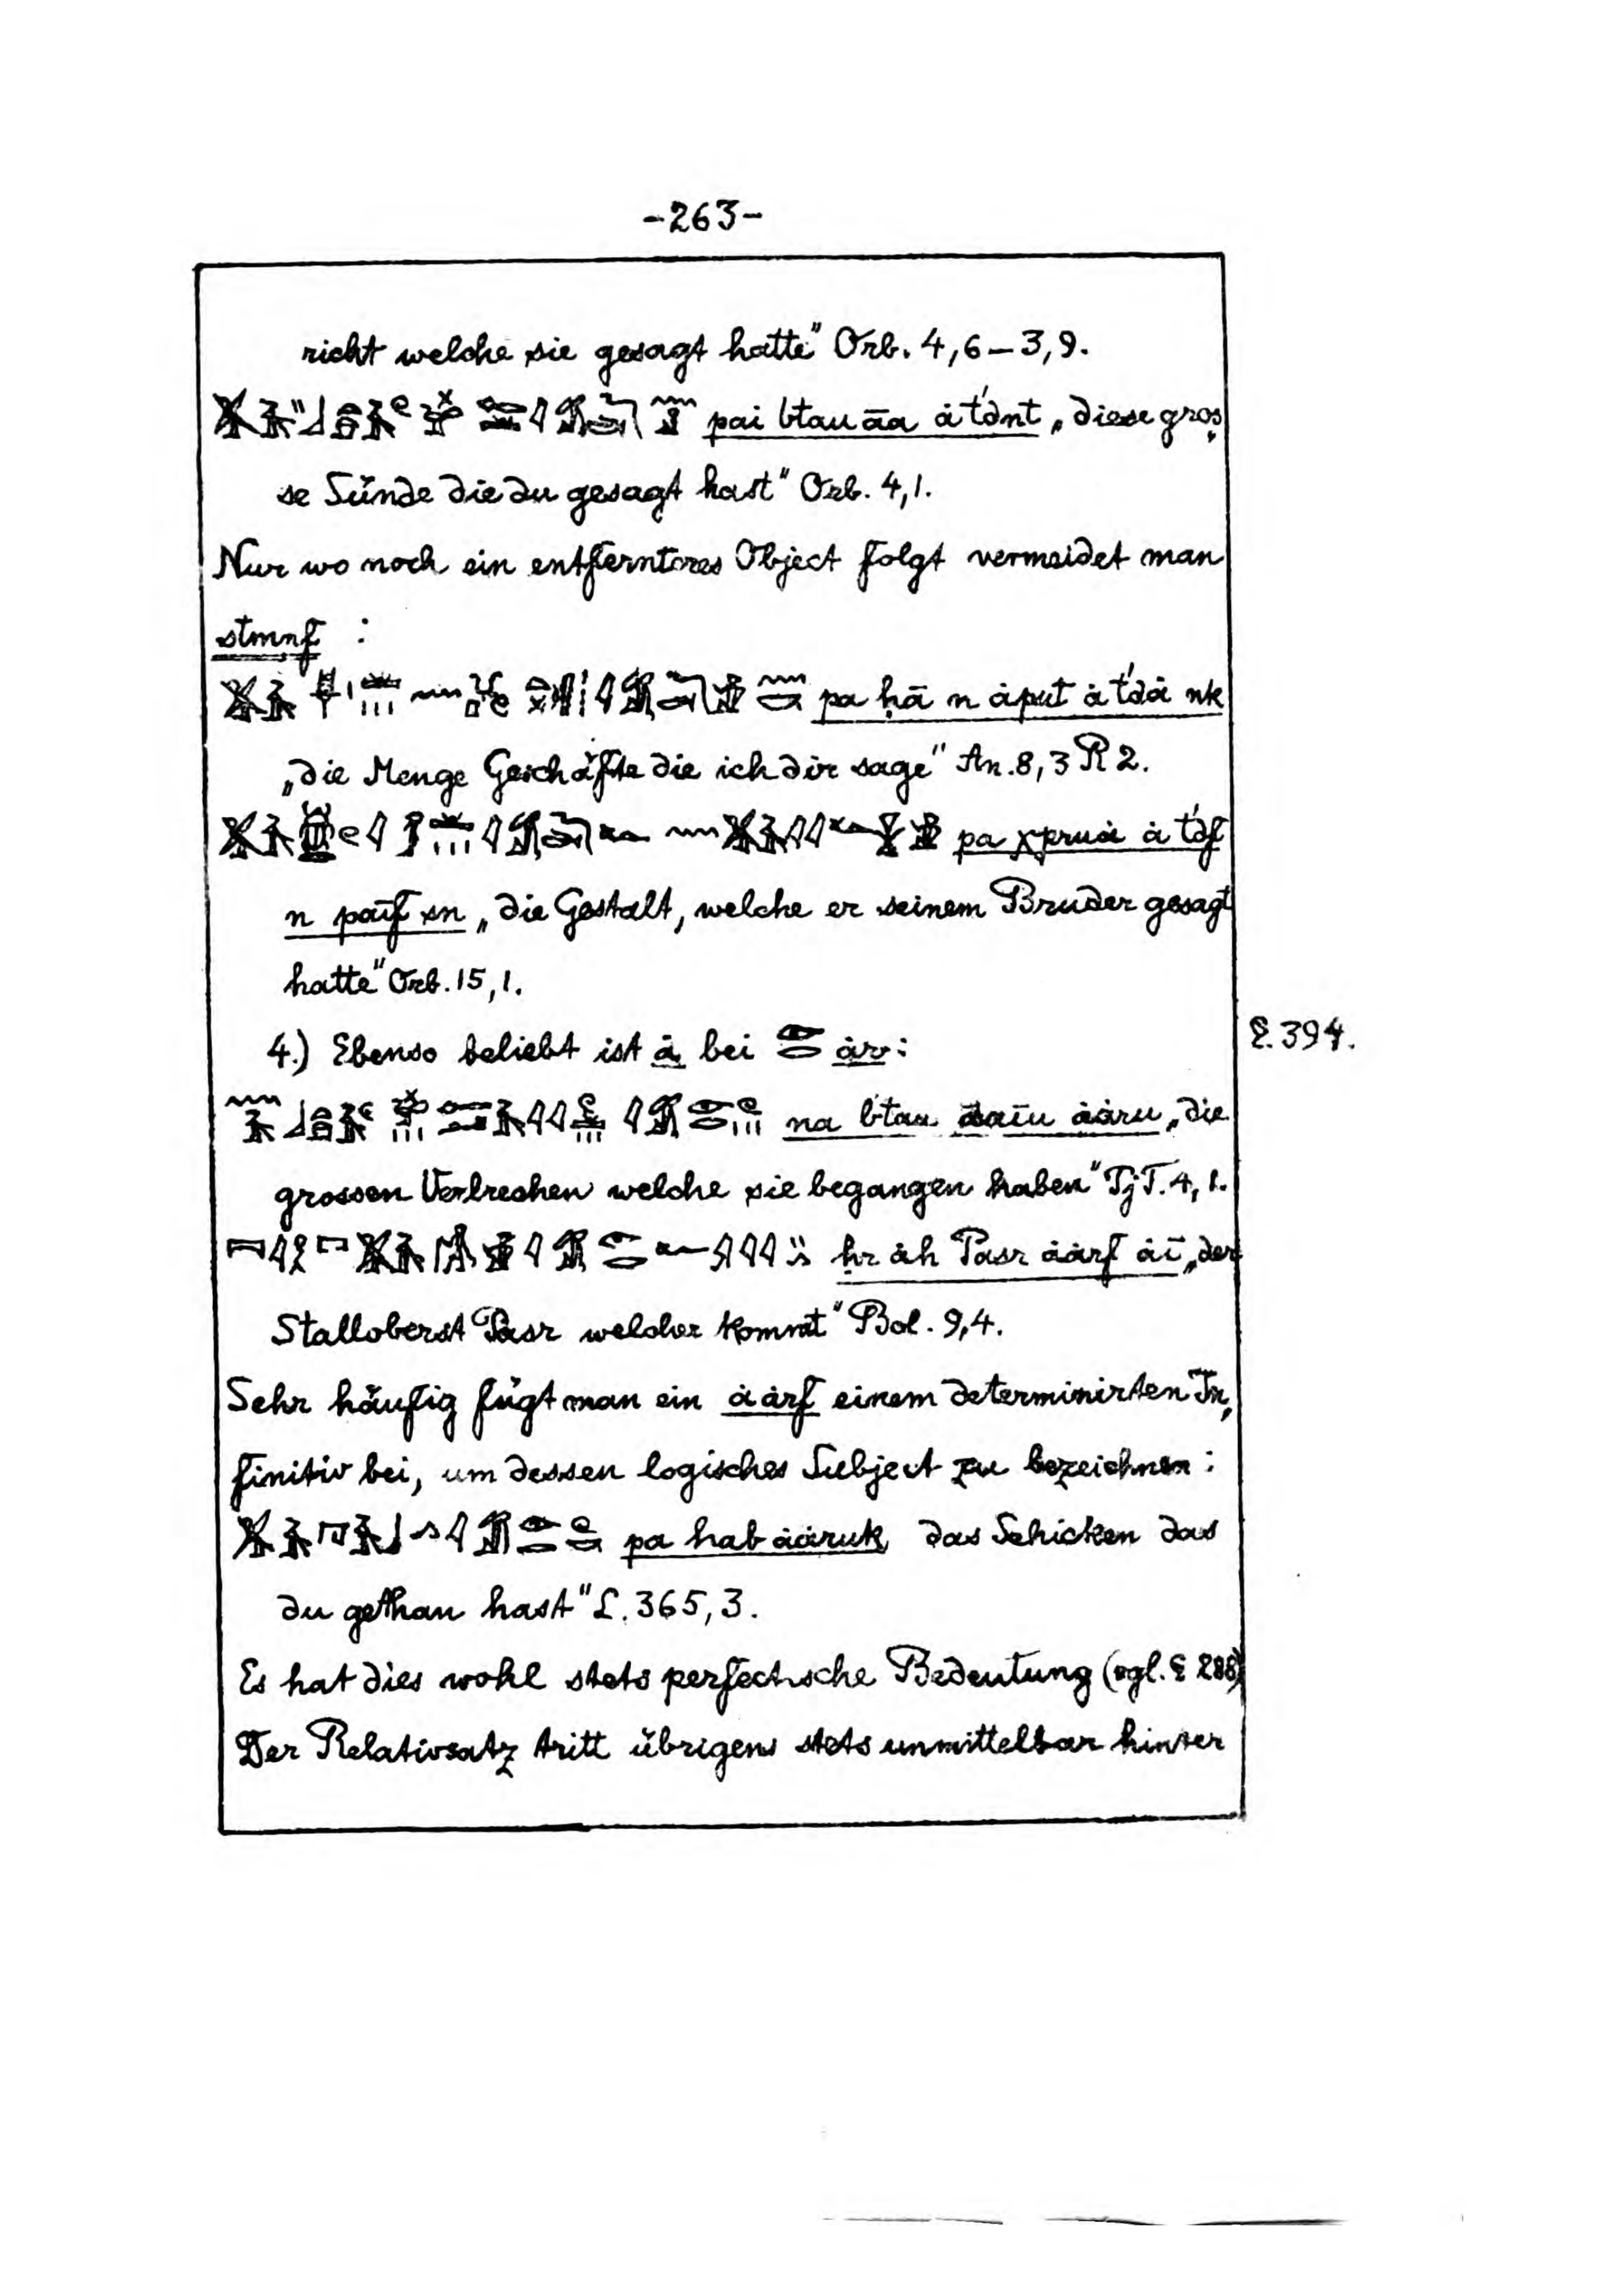 -263-
richt welche sie gesagt hatte" Orb. 4,6-3,9.
pai btau āa ȧ t'dnt „diese gros
se Sünde die du gesagt hast" Orb. 4,1.
Nur wo noch ein entfernteres Object folgt vermeidet man
stmnf :
pa ḥā n ȧput ȧ t'dȧ nk
„die Menge Geschäfte die ich dir sage" An. 8,3 R 2.
pa χpruȧ ȧ t'df
n paīf sn „die Gestalt, welche er seinem Bruder gesagt
hatte" Orb. 15,1.
4.) Ebenso beliebt ist ȧ bei ȧr: §. 394.
na btau āaīu ȧȧru „die
grossen Verbrechen welche sie begangen haben" TjT. 4,1.
ḥr ȧh Pasr ȧȧrf ȧī „der
Stalloberst Pasr welcher kommt" Bol. 9,4.
Sehr häufig fügt man ein ȧȧrf einem determinirten In,
finitiv bei, um dessen logisches Subject zu bezeichnen:
pa hab ȧȧruk das Schicken das
du gethan hast" L. 365,3.
Es hat dies wohl stets perfectische Bedeutung (vgl. § 288)
Der Relativsatz tritt übrigens stets unmittelbar hinter